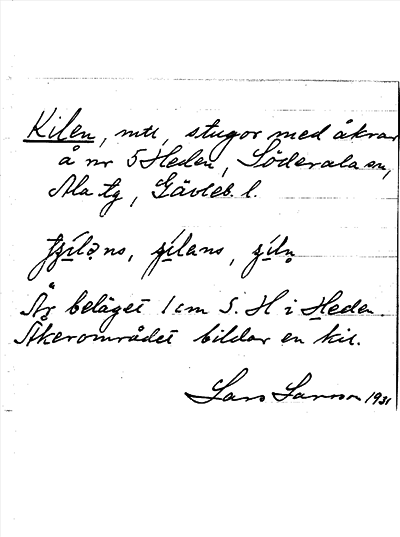 Kilen, mtl, stugor med åkrar
å nr 5 Heden, Söderala sn,
Ala tg, Gävleb. l.
Är beläget 1 cm S. H i Heden
Åkerområdet bildar en kil.
Lars Larsson 1931